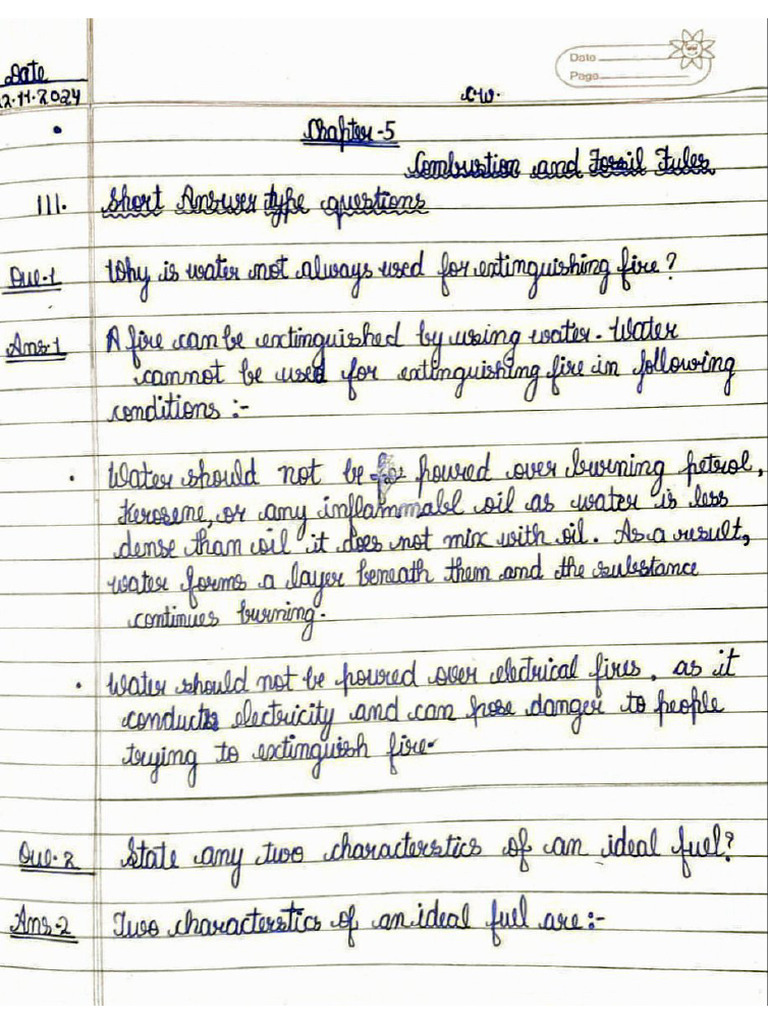 Date
Page
Date
12.11.2024
C.W.
Chapter-5
Combustion and Fossil Fules
III. Short Answer type questions
Que.1 Why is water not always used for extinguishing fire?
Ans.1 A fire can be extinguished by using water. Water
cannot be used for extinguishing fire in following
conditions :-
• Water should not be poured over burning petrol,
kerosene, or any inflammabl oil as water is less
dense than oil it does not mix with oil. As a result,
water forms a layer beneath them and the substance
continues burning.
• Water should not be poured over electrical fires, as it
conducts electricity and can pose danger to people
trying to extinguish fire.
Que.2 State any two characterstics of an ideal fuel?
Ans.2 Two characterstics of an ideal fuel are:-